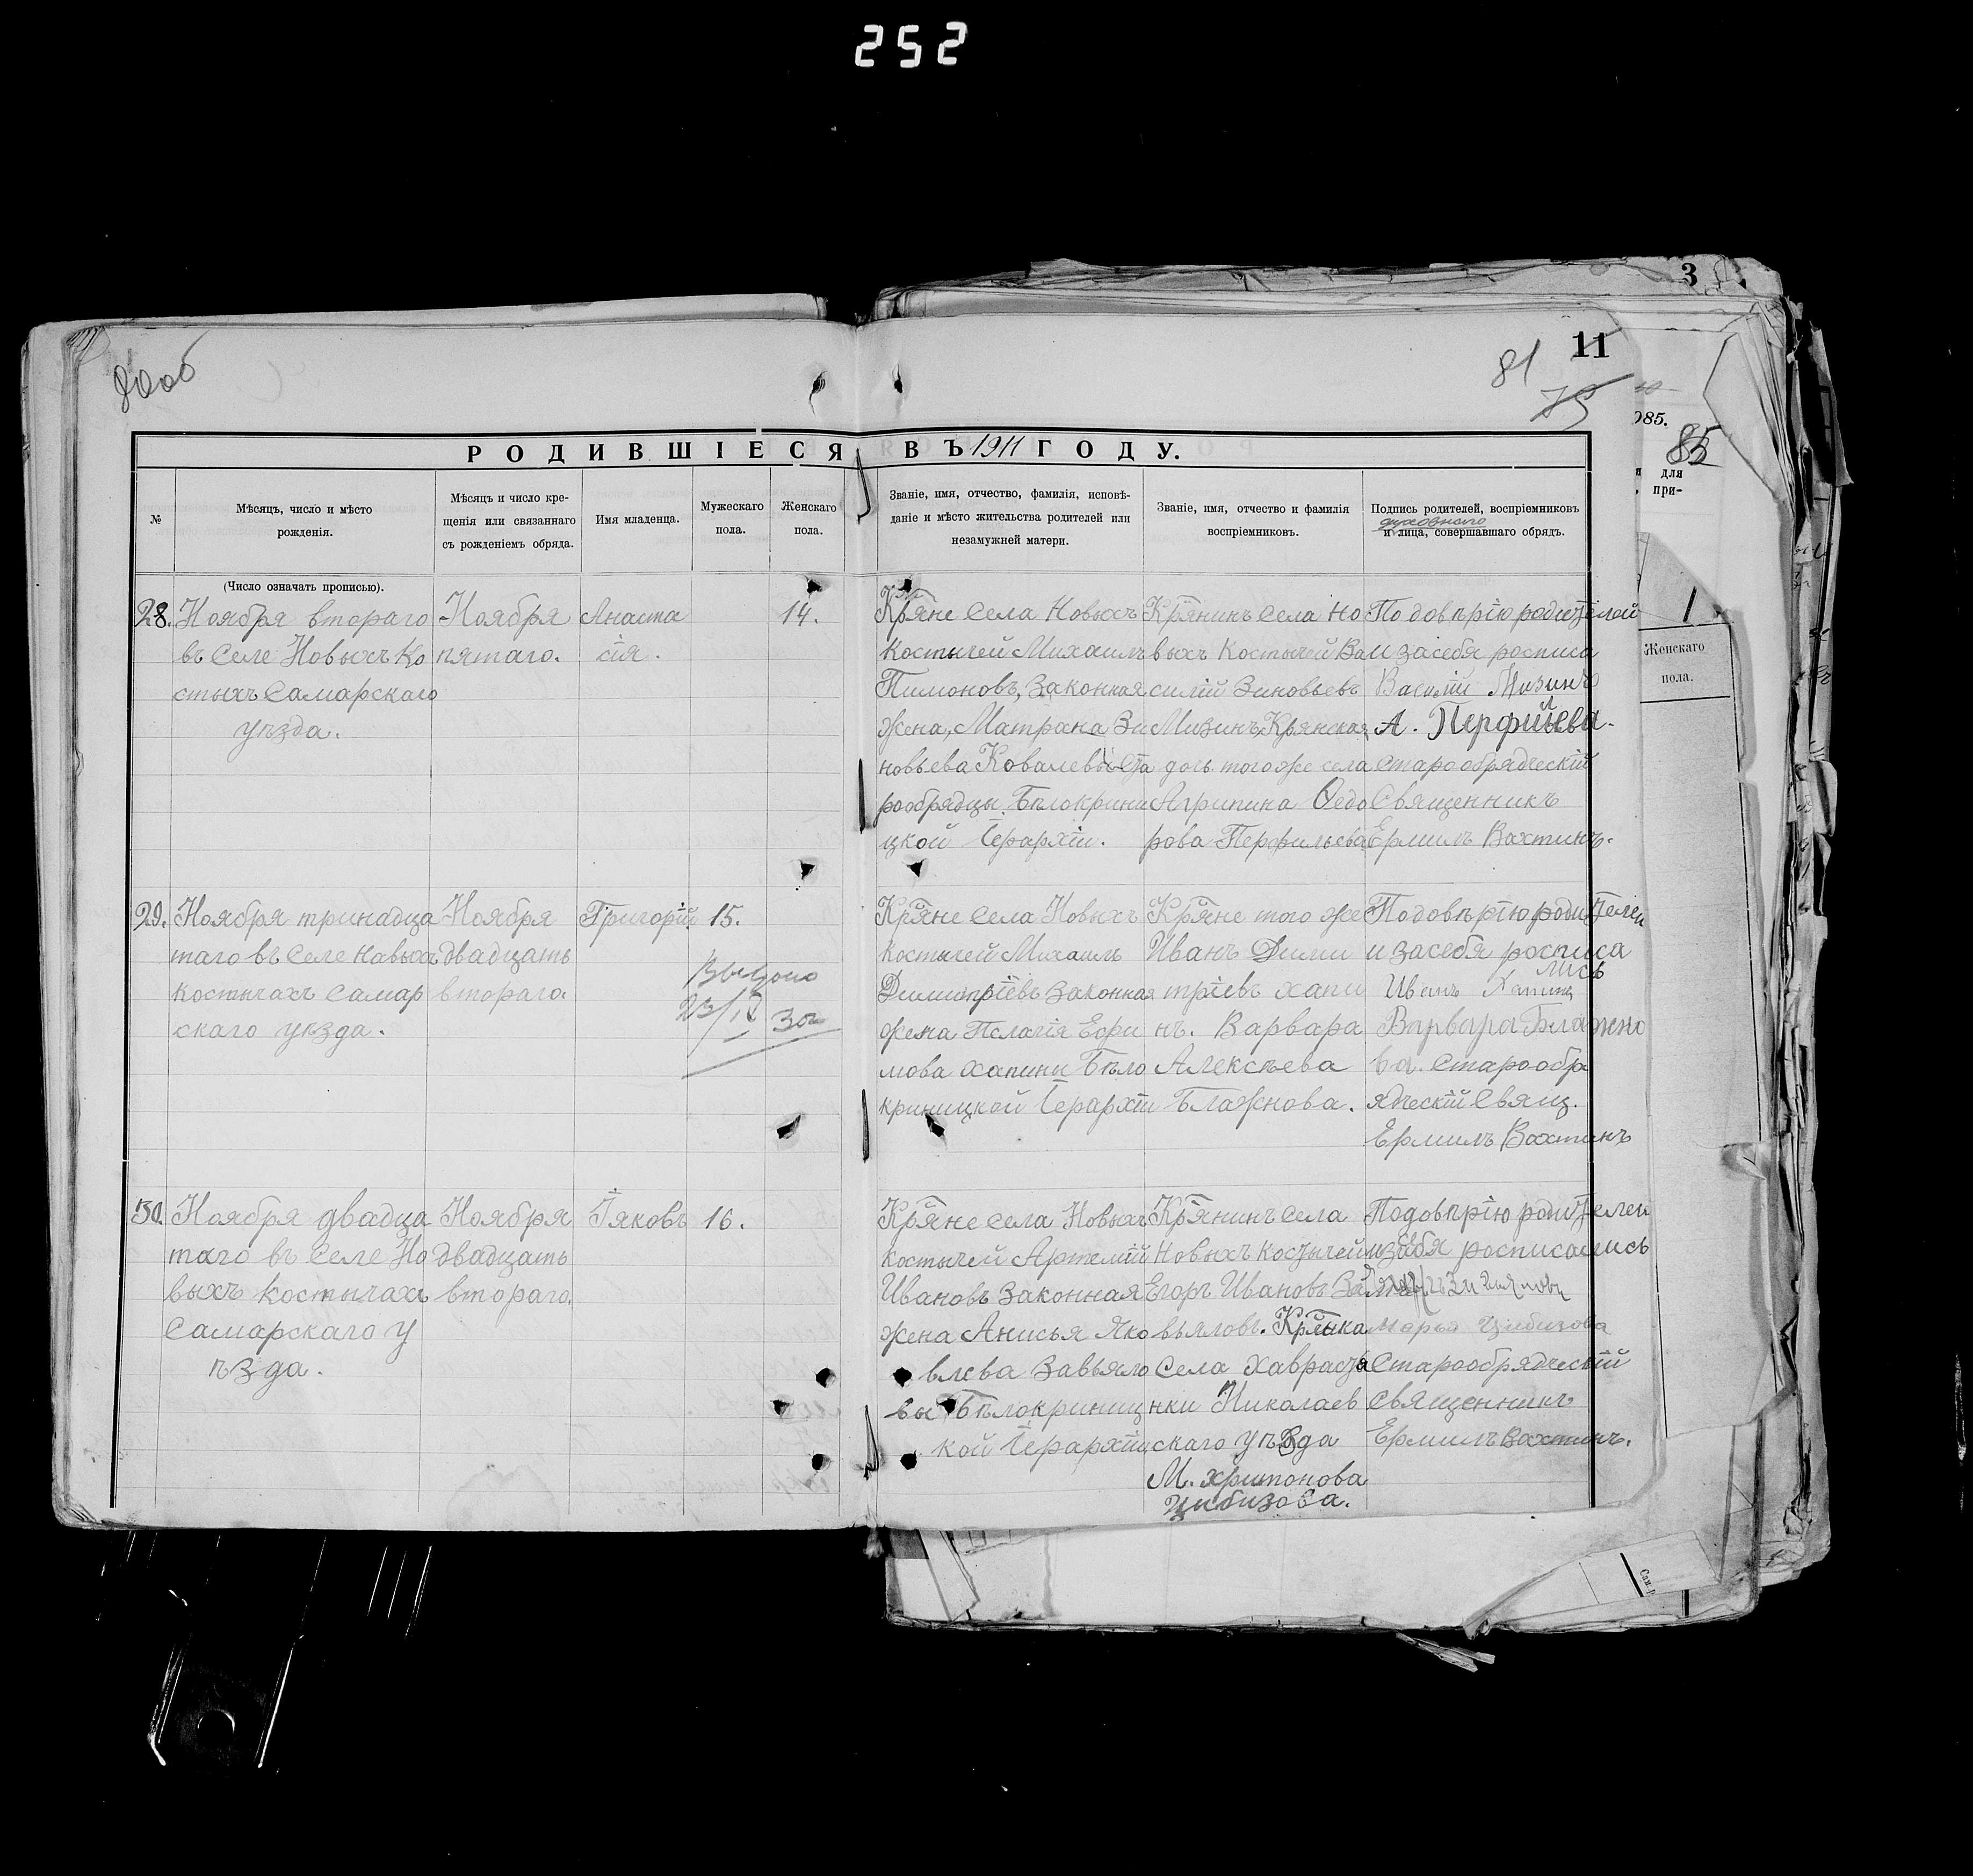 252
3
80 об
81
11
75
085.
85
для
при-
1
Женскаго
пола.
РОДИВШІЕСЯ ВЪ 1911 ГОДУ.
№
Мѣсяцъ, число и мѣсто
рожденія.
(Число означать прописью).
Мѣсяцъ и число кре-
щенія или связаннаго
съ рожденіемъ обряда.
Имя младенца.
Мужескаго
пола.
Женскаго
пола.
Званіе, имя, отчество, фамилія, исповѣ-
даніе и мѣсто жительства родителей или
незамужней матери.
Званіе, имя, отчество и фамилія
воспріемниковъ.
Подпись родителей, воспріемниковъ
духовнаго
и лица, совершавшаго обрядъ.
28.
Ноября втораго
въ Селе Новыхъ Ко
стыхъ Самарскаго
уѣзда.
Ноября
пятаго.
Анаста
сія.
14.
Кр̃яне Села Новыхъ
Костычей Михаилъ
Пимоновъ, Законная
жена, Матрана Зи
новьева Ковалевы Ста
рообрядцы Бѣлокрини
цкой Іерархіи.
Кр̃янинъ Села Но
выхъ Костычей Ва
силій Зиновьевъ
Мизинъ, Крянская
дочь того же села
Агрипина Ѳедо
рова Перфильева
По довѣрію родителей
и засебя росписа
Василій Мизинъ
А. Перфильева.
Старообрядческій
Священникъ
Ермилъ Вахтинъ.
29.
Ноября тринадца
таго въ Селе Новыхъ
Костычахъ Самар
скаго уѣзда.
Ноября
двадцать
втораго.
Григорій
15.
Выдано
Кр̃яне Села Новыхъ
Костычей Михаилъ
Димитріевъ Законная
жена Пелагія Ефи
мова Хапины Бѣло
криницкой Іерархіи
Кр̃яне того же
Иванъ Дими
тріевъ Хапи
нъ. Варвара
Алексѣева
Блажнова.
По довѣрію родителей
и засебя росписа
лись
Иванъ Хапинъ
Варвара Блажно
ва. Старообра
ядческій Свящ.
Ермилъ Вахтинъ
30.
Ноября двадца
таго въ Селе Но
выхъ Костычахъ
Самарскаго у
ѣзда.
Ноября
двадцать
втораго.
Іяковъ
16.
Кр̃яне Села Новыхъ
Костычей Артемій
Ивановъ Законная
жена Анисья Яко
влева Завьяло
вы Бѣлокриниц
кой Іерархіи
Кр̃янинъ Села
Новыхъ Костычей
Егоръ Ивановъ За
вьяловъ. Кр̃янка
Села Хавраста
нки Николаев
скаго уѣзда
М. Хритонова
Цибизова.
По довѣрію родителей
и засебя росписались
Марья Цибизова
Старообрядческій
Священникъ
Ермилъ Вахтинъ.